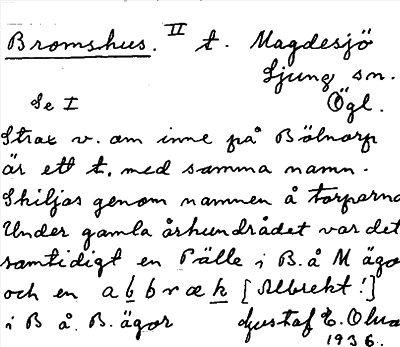 Bromshus. II t. Magdesjö
Ljung sn.
Se I Ögl.
Strax v. om inne på Bölnorp
är ett t. med samma namn.
Skiljas genom namnen å torparna
Under gamla århundrådet var det
samtidigt en Pälle i B. å M ägor
och en abbræk [Albrekt!]
i B å. B. ägor Gustaf E. Olss
1936.